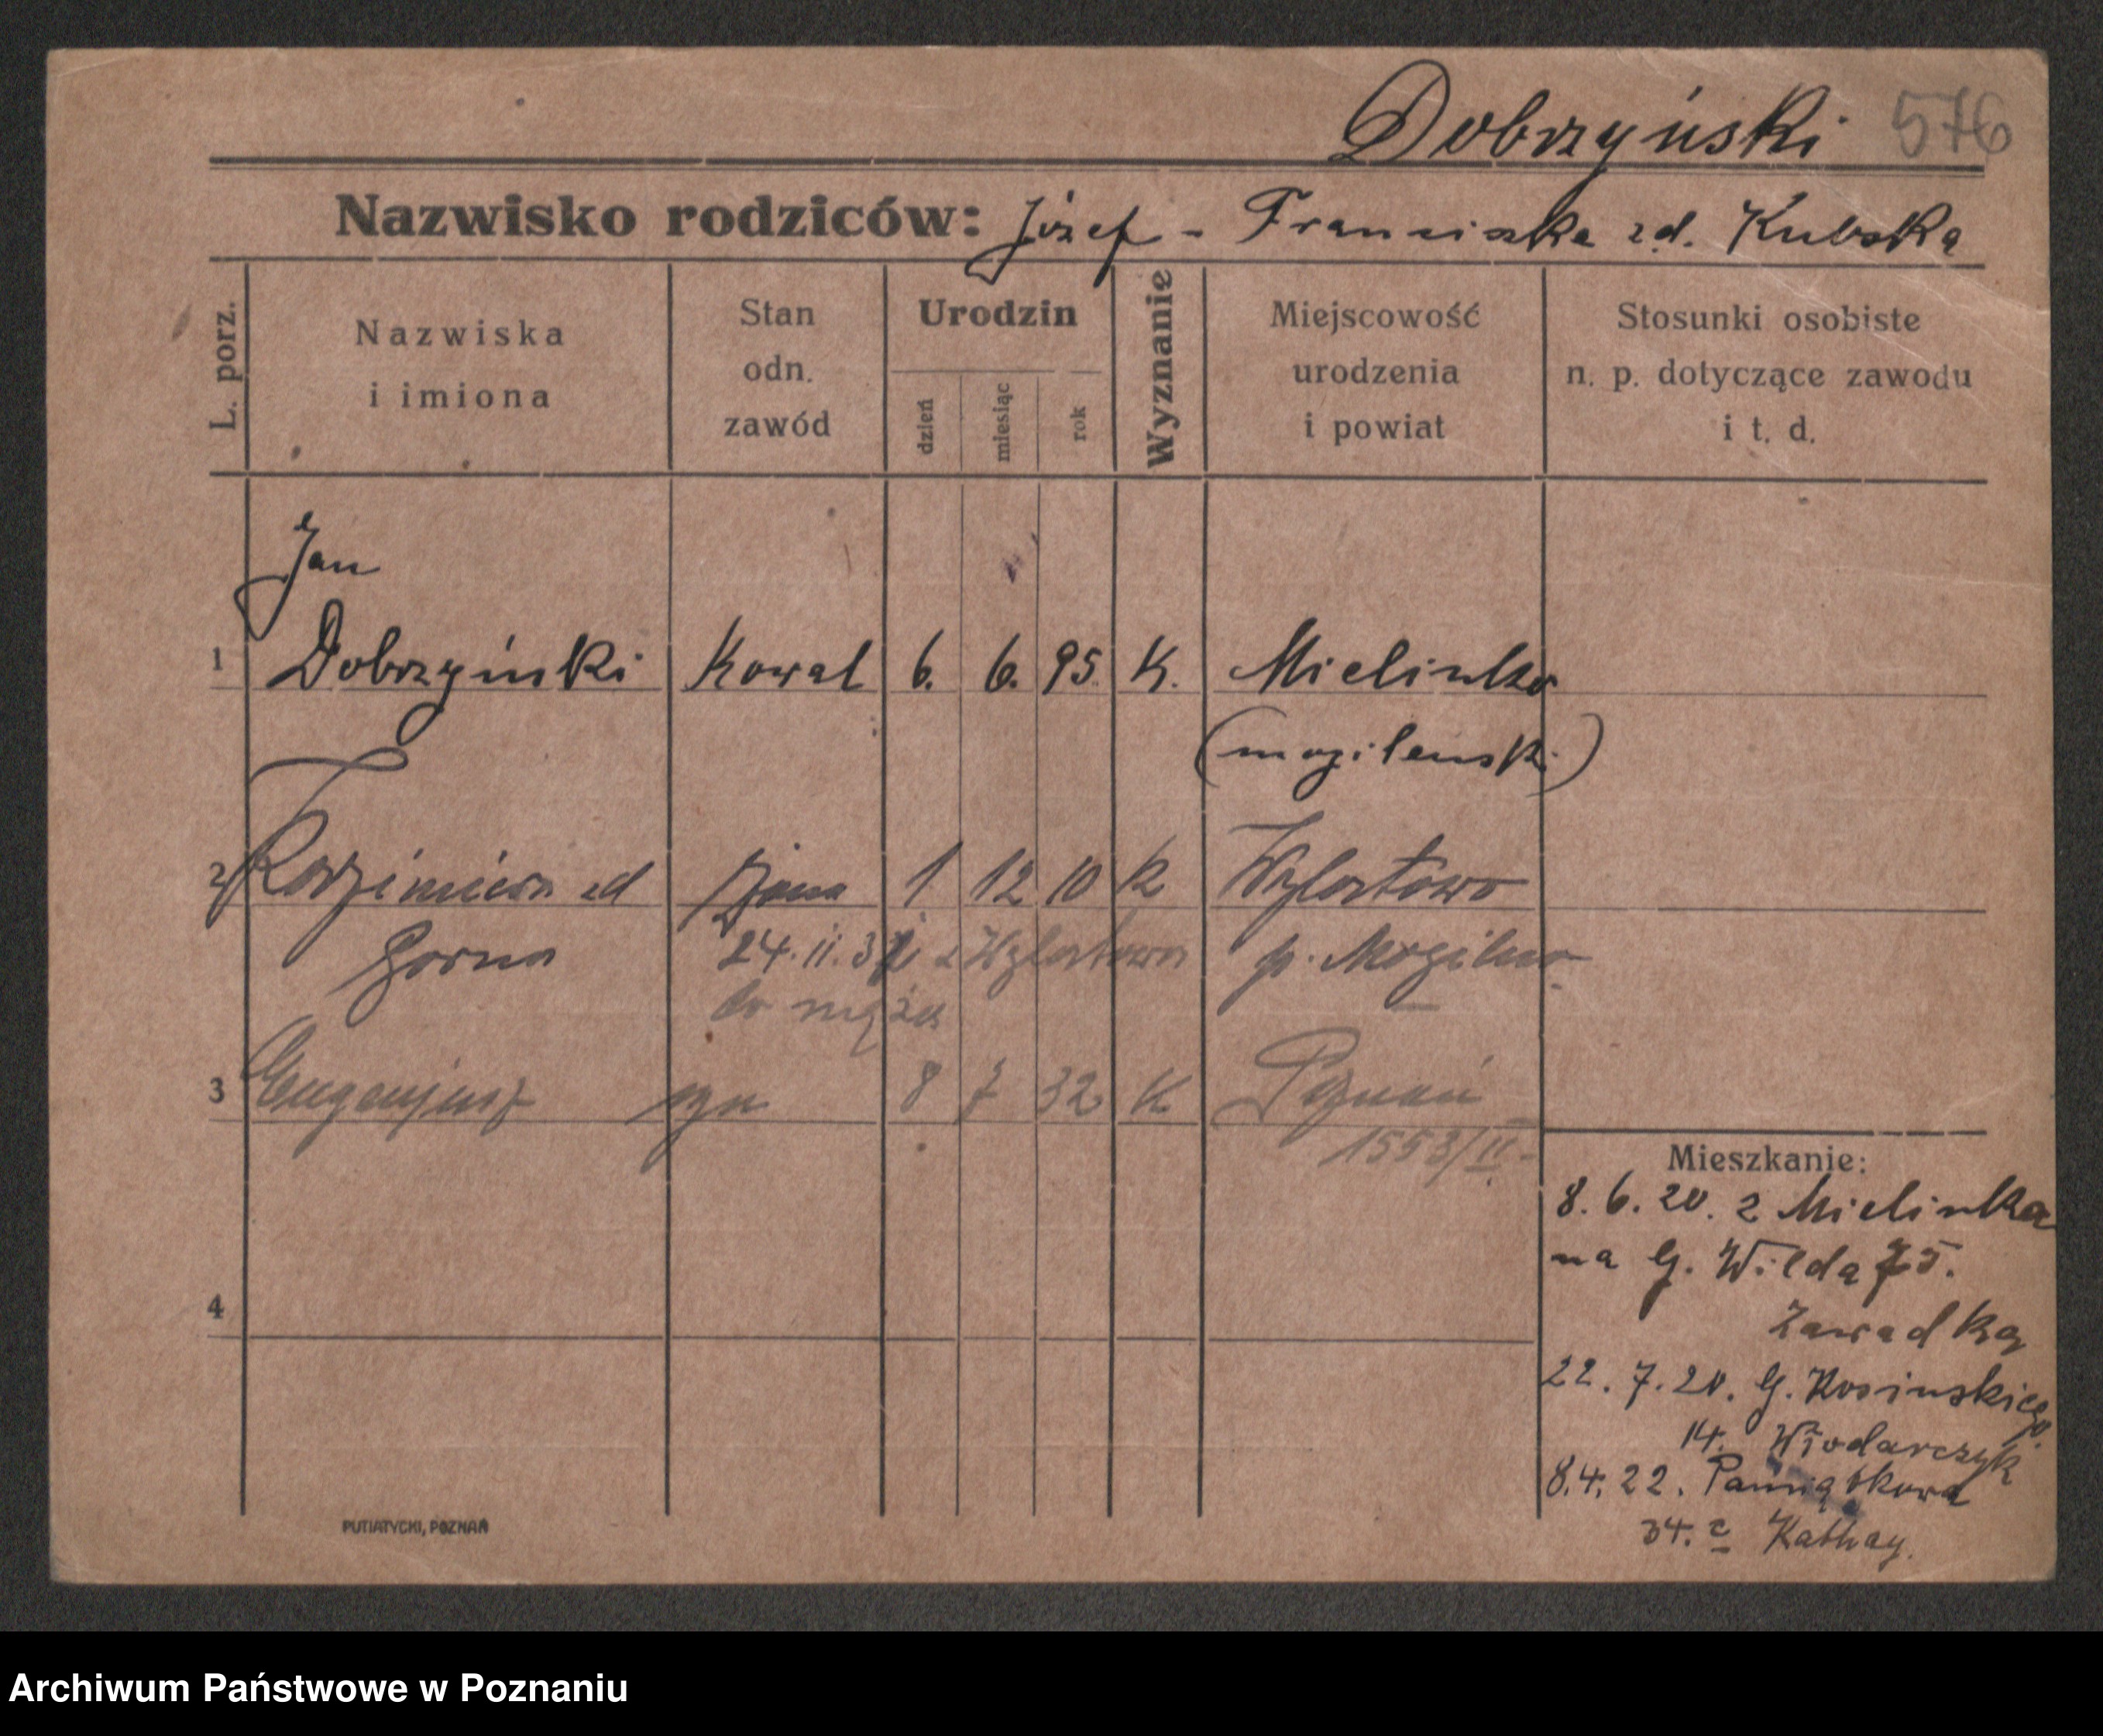 Dobrzyński 576
Nazwisko rodziców: Józef - Franciszka zd. Kubska
L. porz.
Nazwiska
i imiona
Stan
odn.
zawód
Urodzin
dzień
miesiąc
rok
Wyznanie
Miejscowość
urodzenia
i powiat
Stosunki osobiste
n. p. dotyczące zawodu
i t. d.
Jan
1 Dobrzyński Kowal 6. 6. 95. K. Mielinko
(mogilenski)
2 Kazimiera zd żona 1 12 10 K Wylatowo
Gorna 24.11.31 z Wylatowa p. Mogilno
do męża
3 Eugenjusz syn 8 7 32 K Poznań
1553/II.
Mieszkanie:
8. 6. 20. z Mielinka
na G. Wilda 75.
Zawadka
22. 7. 20. G. Kosinskiego
14. Włodarczyk
8.4.22. Pamiątkowa
34. c Kathay.
4
PUTIATYCKI, POZNAŃ
Archiwum Państwowe w Poznaniu